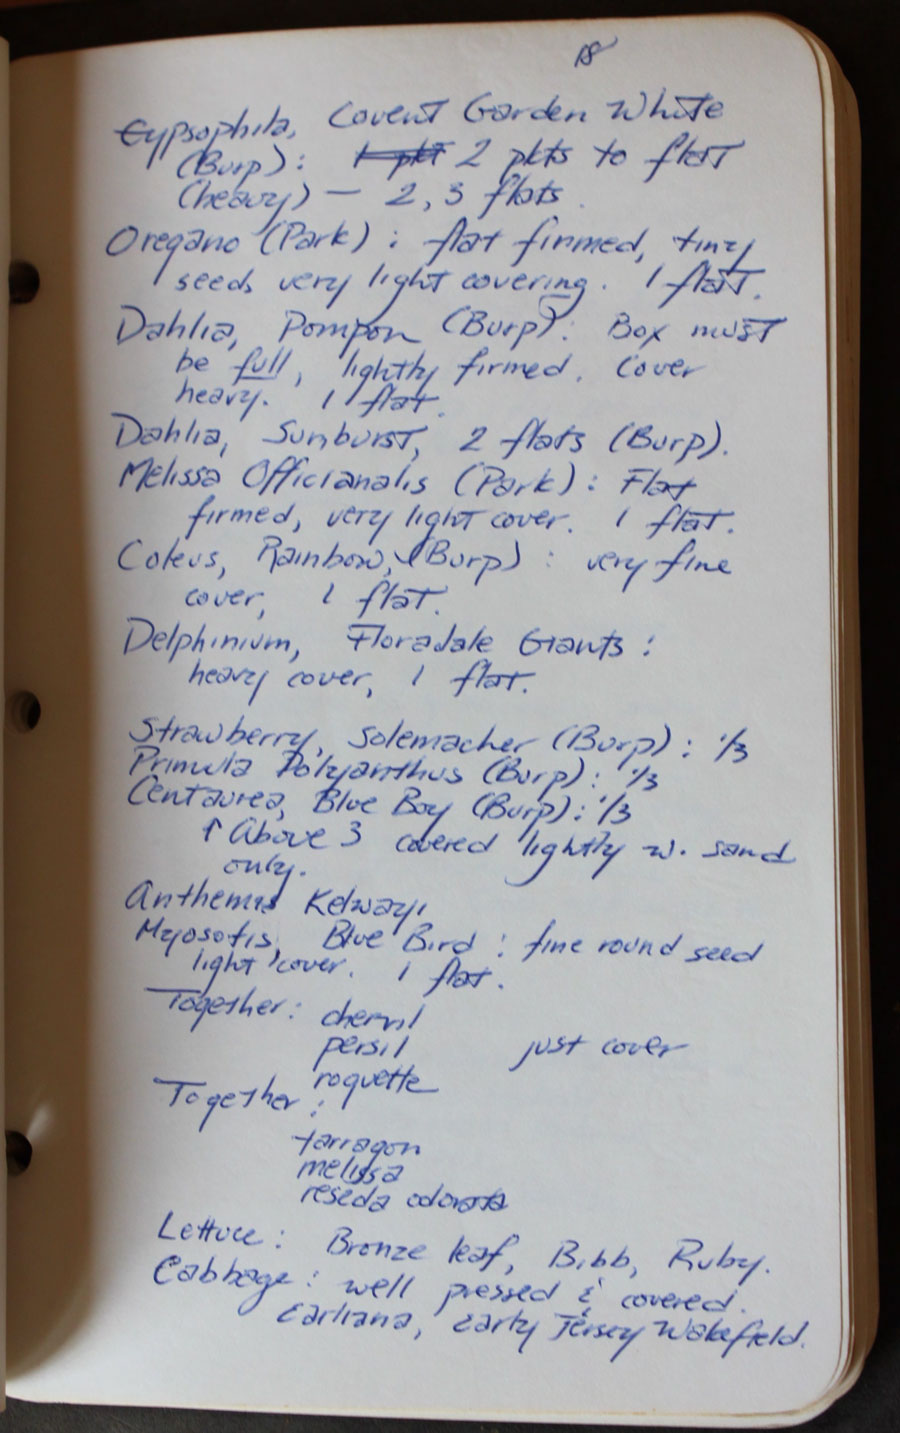 18
Gypsophila, Covent Garden White
(Burp): 1 pkt 2 pkts to flat
(heavy) — 2, 3 flats.
Oregano (Park): flat firmed, tiny
seeds very light covering. 1 flat.
Dahlia, Pompon (Burp): Box must
be full, lightly firmed. Cover
heavy. 1 flat.
Dahlia, Sunburst, 2 flats (Burp).
Melissa Officianalis (Park): Flat
firmed, very light cover. 1 flat.
Coleus, Rainbow, (Burp): very fine
cover, 1 flat.
Delphinium, Floradale Giants:
heavy cover, 1 flat.
Strawberry, Solemacher (Burp): 1/3
Primula Polyanthus (Burp): 1/3
Centaurea, Blue Boy (Burp): 1/3
↑ Above 3 covered lightly w. sand
only.
Anthemis Kelwayi
Myosotis, Blue Bird: fine round seed
light cover. 1 flat.
Together: chervil
persil just cover
roquette
Together:
tarragon
melissa
reseda odorata
Lettuce: Bronze leaf, Bibb, Ruby.
Cabbage: well pressed & covered.
Earliana, Early Jersey Wakefield.